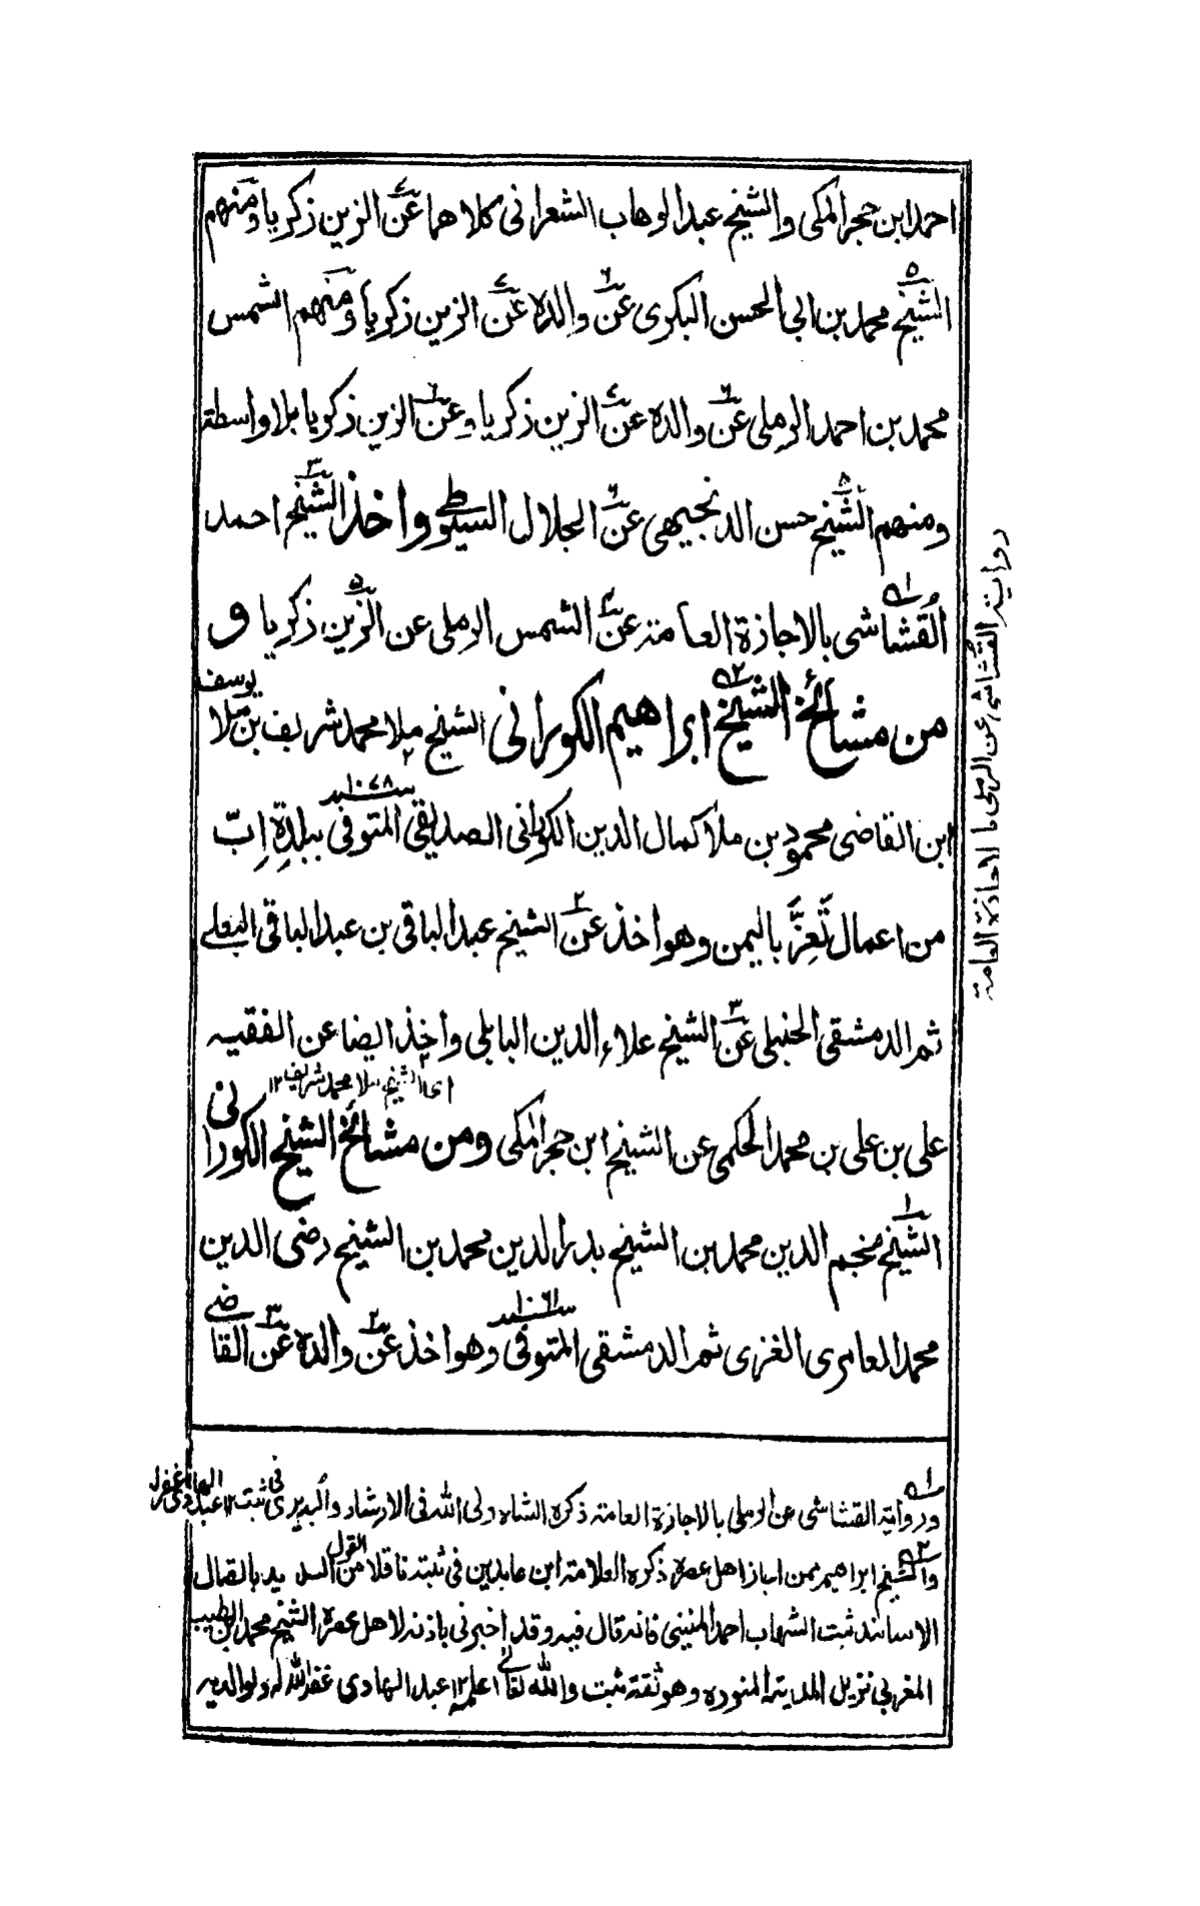 احمد ابن حجر المكى والشيخ عبد الوهاب الشعرانى كلاهما عن الزين زكريا ومنهم
الشيخ محمد بن ابى الحسن البكرى عن والده عن الزين زكريا ومنهم الشمس
محمد بن احمد الرملى عن والده عن الزين زكريا وعن الزين زكريا بلا واسطة
ومنهم الشيخ حسن الدنجيهى عن الجلال السيوطى واخذ الشيخ احمد
القشاشى بالاجازة العامة عن الشمس الرملى عن الزين زكريا و
من مشائخ الشيخ ابراهيم الكورانى الشيخ ملا محمد شريف بن ملا يوسف
ابن القاضى محمود بن ملا كمال الدين الكورانى الصديقى المتوفى سنة ١٠٧٨ ببلدة اِبّ
من اعمال تَعِزَّ باليمن وهو اخذ عن الشيخ عبد الباقى بن عبد الباقى البعلى
ثم الدمشقى الحنبلى عن الشيخ علاء الدين البابلى واخذ ايضا عن الفقيه
اى الشيخ ملا محمد شريف ١٢
على بن على بن محمد الحكمى عن الشيخ ابن حجر المكى ومن مشائخ الشيخ الكورانى
الشيخ نجم الدين محمد بن الشيخ بدر الدين محمد بن الشيخ رضى الدين
محمد العامرى الغزى ثم الدمشقى المتوفى سنة ١٠٦١ وهو اخذ عن والده عن القاضى
رواية القشاشى عن الرملى بالاجازة العامة
١ ورواية القشاشى عن الرملى بالاجازة العامة ذكره الشاه ولى الله فى الارشاد والبديرى فى ثبت ١٢ عبد الهادى غفرله
٢ والشيخ ابراهيم ممن اجاز اهل عصره ذكره العلامة ابن عابدين فى ثبته ناقلا من القول السديد باتصال
الاسانيد ثبت الشهاب احمد المنينى فانه قال فيه وقد اخبرنى باذنه لاهل عصره الشيخ محمد بن الطيب
المغربى نزيل المدينة المنوره وهو ثقة ثبت والله تعالى اعلم ١٢ عبد الهادى غفر الله له ولوالديه